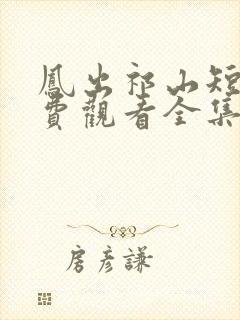 鳳出祁山短
費觀看全集
房彥謙